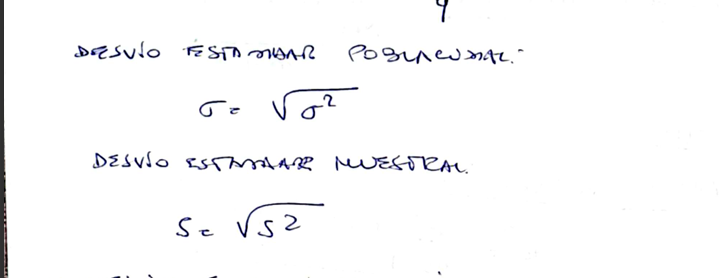 DESVÍO ESTANDAR POBLACIONAL.-
σ = √σ²
DESVÍO ESTANDAR MUESTRAL.
S = √S²